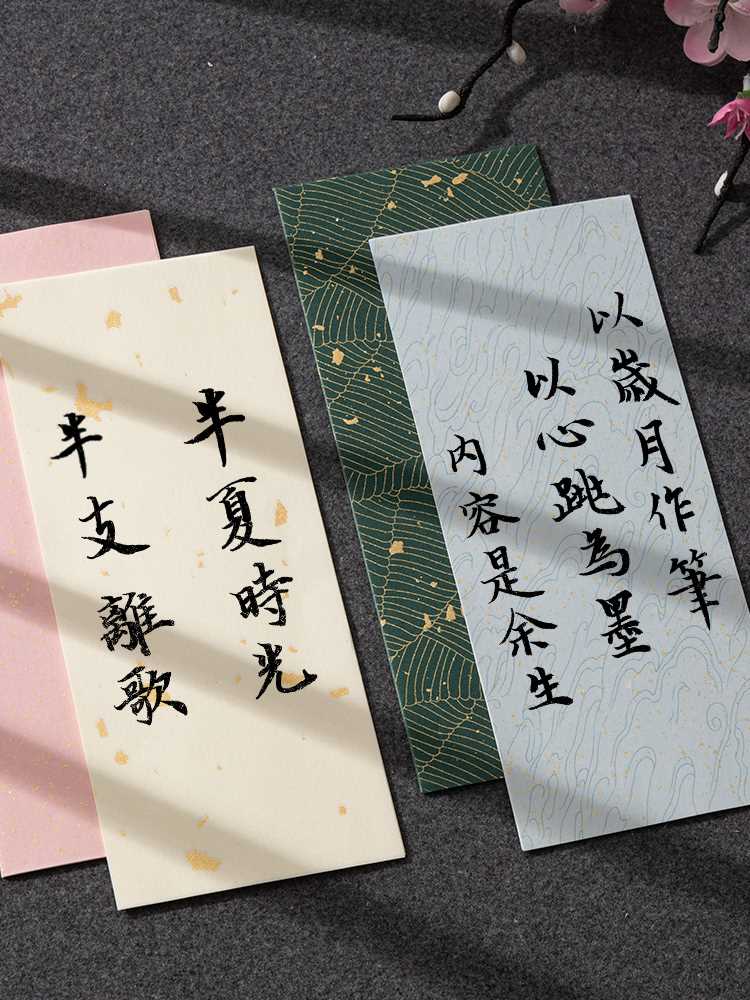 半夏時光
半支離歌
以歲月作筆
以心跳為墨
内容是余生